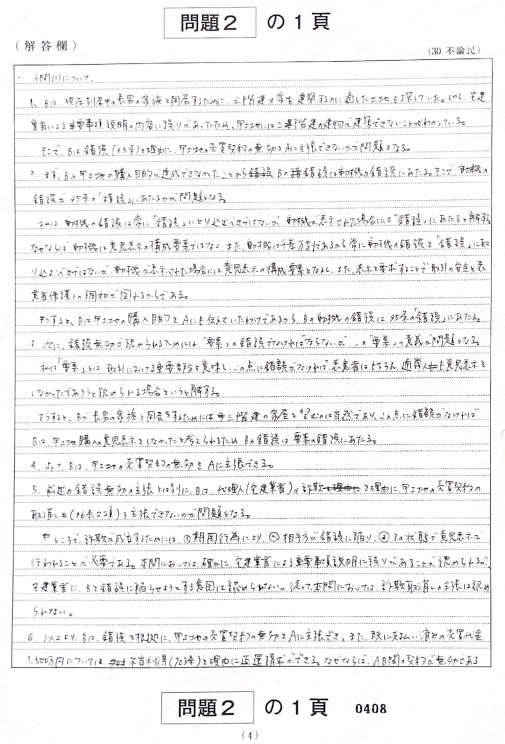 問題2 の1頁
(解答欄)
(30.不論民)
一 小問(1)について
1、Bは、現在別居中の長男の家族と同居するために、三階建の家を建築するのに適した土地を探していた。しかし、宅建
業者による重要事項説明の内容に誤りがあったため、甲土地には三階建の建物が建築できないことがわかっている。
そこで、Bは錯誤(95条)を理由に、甲土地の売買契約の無効をAに主張できないかが問題となる。
2、まず、Bの甲土地の購入目的が達成できなかったことから錯誤 Bの錯誤は動機の錯誤にあたる。そこで動機の
錯誤が95条の「錯誤」にあたるかが問題となる。
私は、動機の錯誤は常に「錯誤」にとり込むべきではないが、動機が表示された場合には「錯誤」にあたると解する。
なぜならば、動機は意思表示の構成要素ではなく、また、動機は千差万別であるから常に動機の錯誤を「錯誤」に取
り込むべきではないが、動機が表示された場合には意思表示の構成要素となるし、また、表示を要求することで取引の安全と表
意者保護との調和が図れるからである。
そうすると、Bは甲土地の購入目的をAにも伝えていたわけであるから、Bの動機の錯誤は、95条の「錯誤」にあたる。
3、次に、錯誤無効が認められるためには、「要素」の錯誤でなければならないが、この「要素」の意義が問題となる。
私は「要素」とは、取引における重要部分を意味し、この点に錯誤がなければ、表意者はもちろん、通常人も意思表示を
しなかったであろうと認められる場合をいうと解する。
そうすると、Bが長男の家族と同居をするためには三階建の家屋を望むのは当然であり、この点に錯誤がなければ
Bは、甲土地購入の意思表示をしなかったと考えられるため、Bの錯誤は要素の錯誤にあたる。
4、よって、Bは、甲土地の売買契約の無効をAに主張できる。
5、前述の錯誤無効の主張とは別に、Bは、代理人(宅建業者)の詐欺を理由に、甲土地の売買契約の
取消しを(96条2項)を主張できないかが問題となる。
ところで、詐欺が成立するためには、①欺罔行為により、②相手方が錯誤に陥り、③その状態で意思表示が
行われることが必要である。本問においては、確かに、宅建業者による重要事項説明に誤りがあることが認められるが、
宅建業者に、Bを錯誤に陥らせようとする意図は認められない。従って、本問においては、詐欺取り消しの主張は認め
られない。
6、以上より、Bは、錯誤を根拠に、甲土地の売買契約の無効をAに主張でき、また、既に支払い済みの売買代金
1,500万円については、不当利得(703条)を理由に返還請求ができる。なぜならば、AB間の契約が無効である
問題2 の1頁 0408
(4)